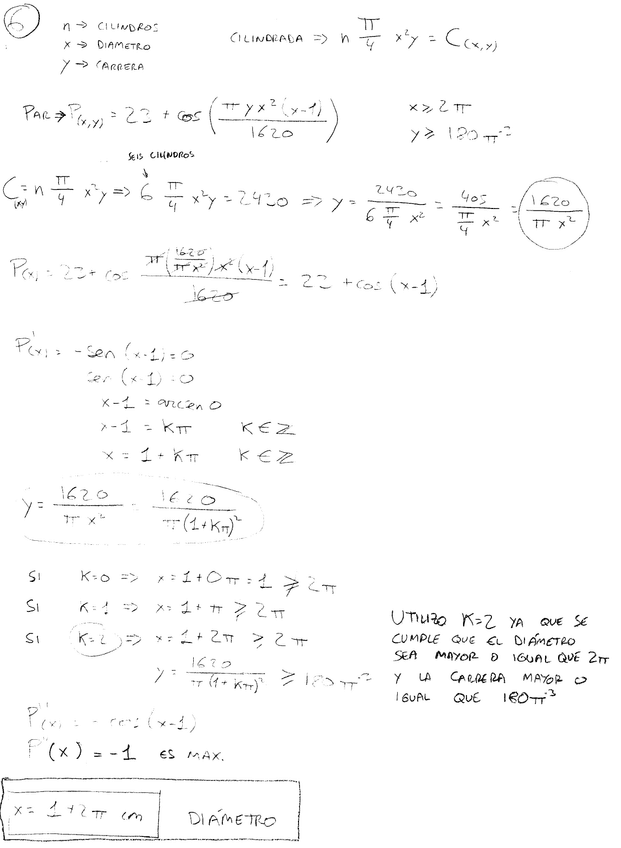 6
n → CILINDROS
x → DIAMETRO
y → CARRERA
CILINDRADA ⇒ n π/4 x²y = C(x,y)
PAR ⇒ P(x,y) = 23 + cos (π y x² (x-1) / 1620)
x ⩾ 2π
y ⩾ 180π⁻³
SEIS CILINDROS
C(x,y) = n π/4 x²y ⇒ 6 π/4 x²y = 2430 ⇒ y = 2430 / (6 π/4 x²) = 405 / (π/4 x²) = 1620 / (π x²)
P(x) = 23 + cos (π (1620 / π x²) x² (x-1)) / 1620 = 23 + cos (x-1)
P'(x) = -sen (x-1) = 0
sen (x-1) = 0
x-1 = arcsen 0
x-1 = Kπ K ∈ ℤ
x = 1 + Kπ K ∈ ℤ
y = 1620 / (π x²) = 1620 / (π (1+Kπ)²)
SI K=0 ⇒ x = 1+0π = 1 ⩾ 2π
SI K=1 ⇒ x = 1+π ⩾ 2π
SI K=2 ⇒ x = 1+2π ⩾ 2π
y = 1620 / (π (1+Kπ)²) ⩾ 180π⁻³
UTILIZO K=2 YA QUE SE
CUMPLE QUE EL DIÁMETRO
SEA MAYOR O IGUAL QUE 2π
Y LA CARRERA MAYOR O
IGUAL QUE 180π⁻³
P''(x) = -cos (x-1)
P''(x) = -1 ES MAX.
x = 1+2π cm DIÁMETRO